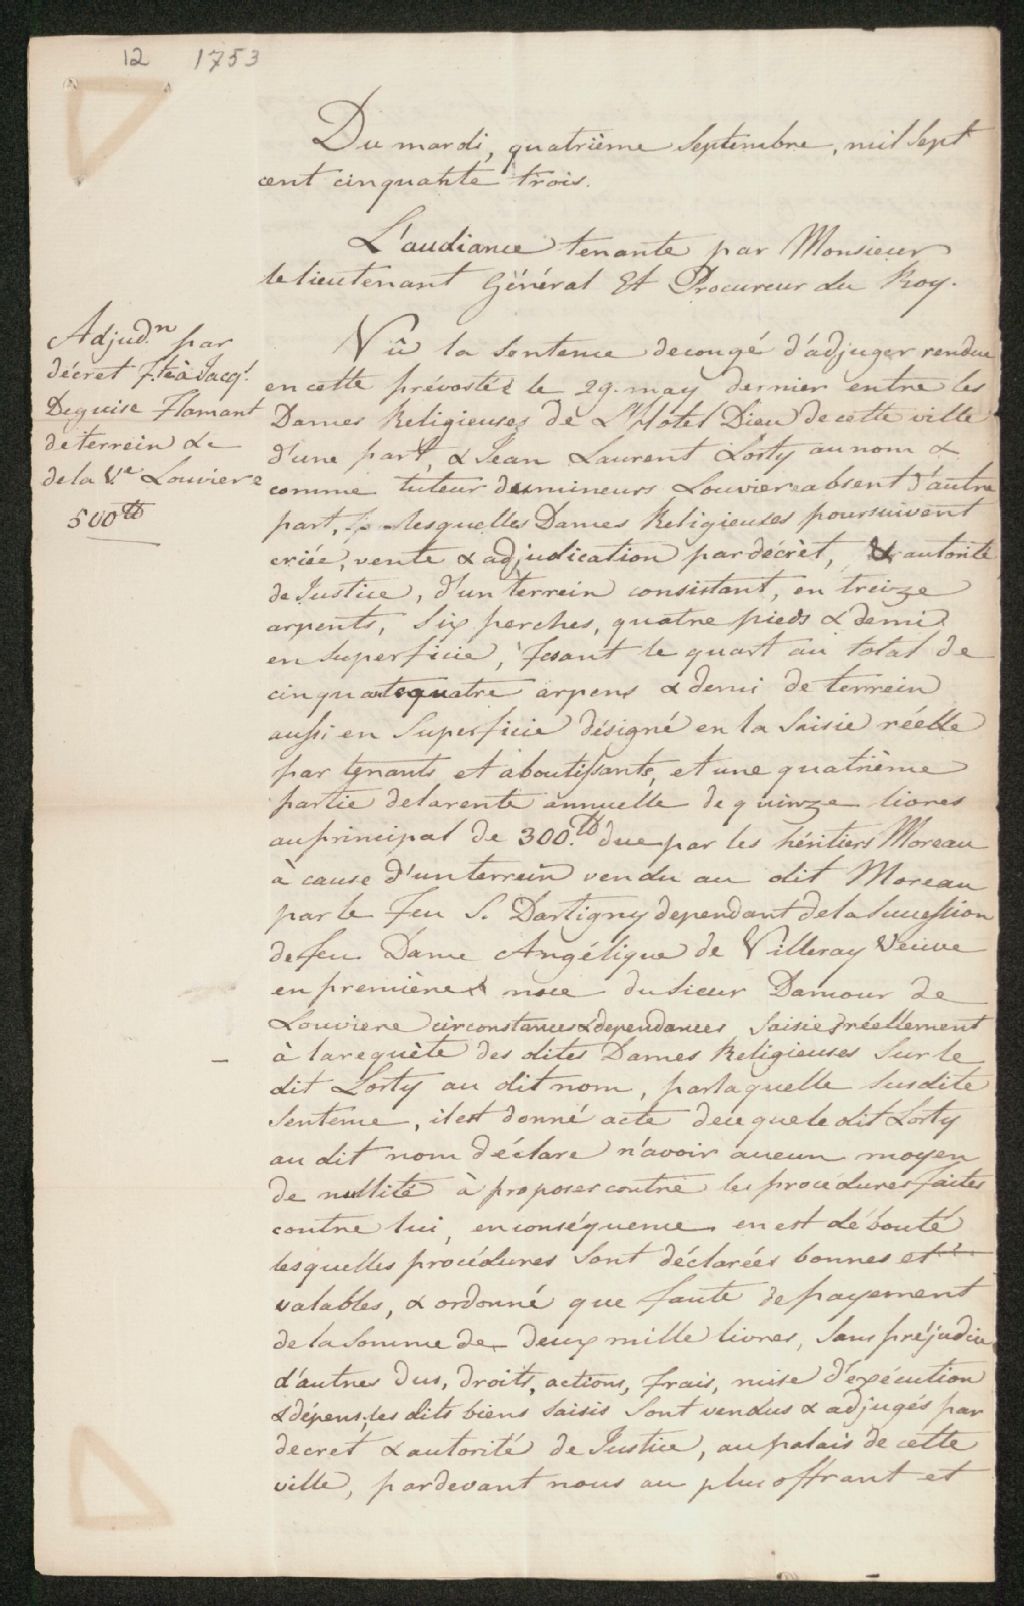 12 1753
Du mardi, quatrième Septembre, mil Sept
cent cinquante trois.
L'audiance tenante par Monsieur
le lieutenant Général Et Procureur du Roy.
Adjud.n par
décret f.te à Jacq.
Deguise Flamant
de terrein &c
de la Ve Louviere
500 lb
Vû la Sentence de congé d'adjuger rendue
en cette prévosté le 29. may dernier entre les
Dames Religieuses de L'Hôtel Dieu de cette ville
d'une part, & Jean Laurent Lorty au nom &
comme tuteur des mineurs Louviere absent d'autre
part, lesquelles Dames Religieuses poursuivent
criée, vente & adjudication par décrèt, & autorité
de Justice, d'un terrein consistant, en treize
arpents, Six perches, quatre pieds & demi
en Superficie, fesant le quart au total de
cinquante quatre arpens & demi de terrein
aussi en Superficie désigné en la Saisie réelle
par tenants et aboutissants, et une quatrième
partie de la rente annuelle de quinze livres
au principal de 300.lb due par les héritiers Moreau
à cause d'un terrein vendu au dit Moreau
par le feu S. Dartigny dependant de la Succession
de feu Dame Angélique de Villeray Veuve
en première noce du Sieur Damour de
Louviere circonstances & dependances Saisies réellement
à la requète des dites Dames Religieuses Sur le
dit Lorty au dit nom, par laquelle Susdite
Sentence, il est donné acte de ce que le dit Lorty
au dit nom déclare n'avoir aucun moyen
de nullité à proposer contre les procédures faites
contre lui, en conséquence en est débouté
lesquelles procédures Sont déclarées bonnes et
valables, & ordonné que faute de payement
de la Somme de deux mille livres, Sans préjudice
d'autres dus, droits, actions, frais, mise d'exécution
& dépens, les dits biens saisis Sont vendus & adjugés par
decret & autorité de Justice, au palais de cette
ville, pardevant nous au plus offrant et